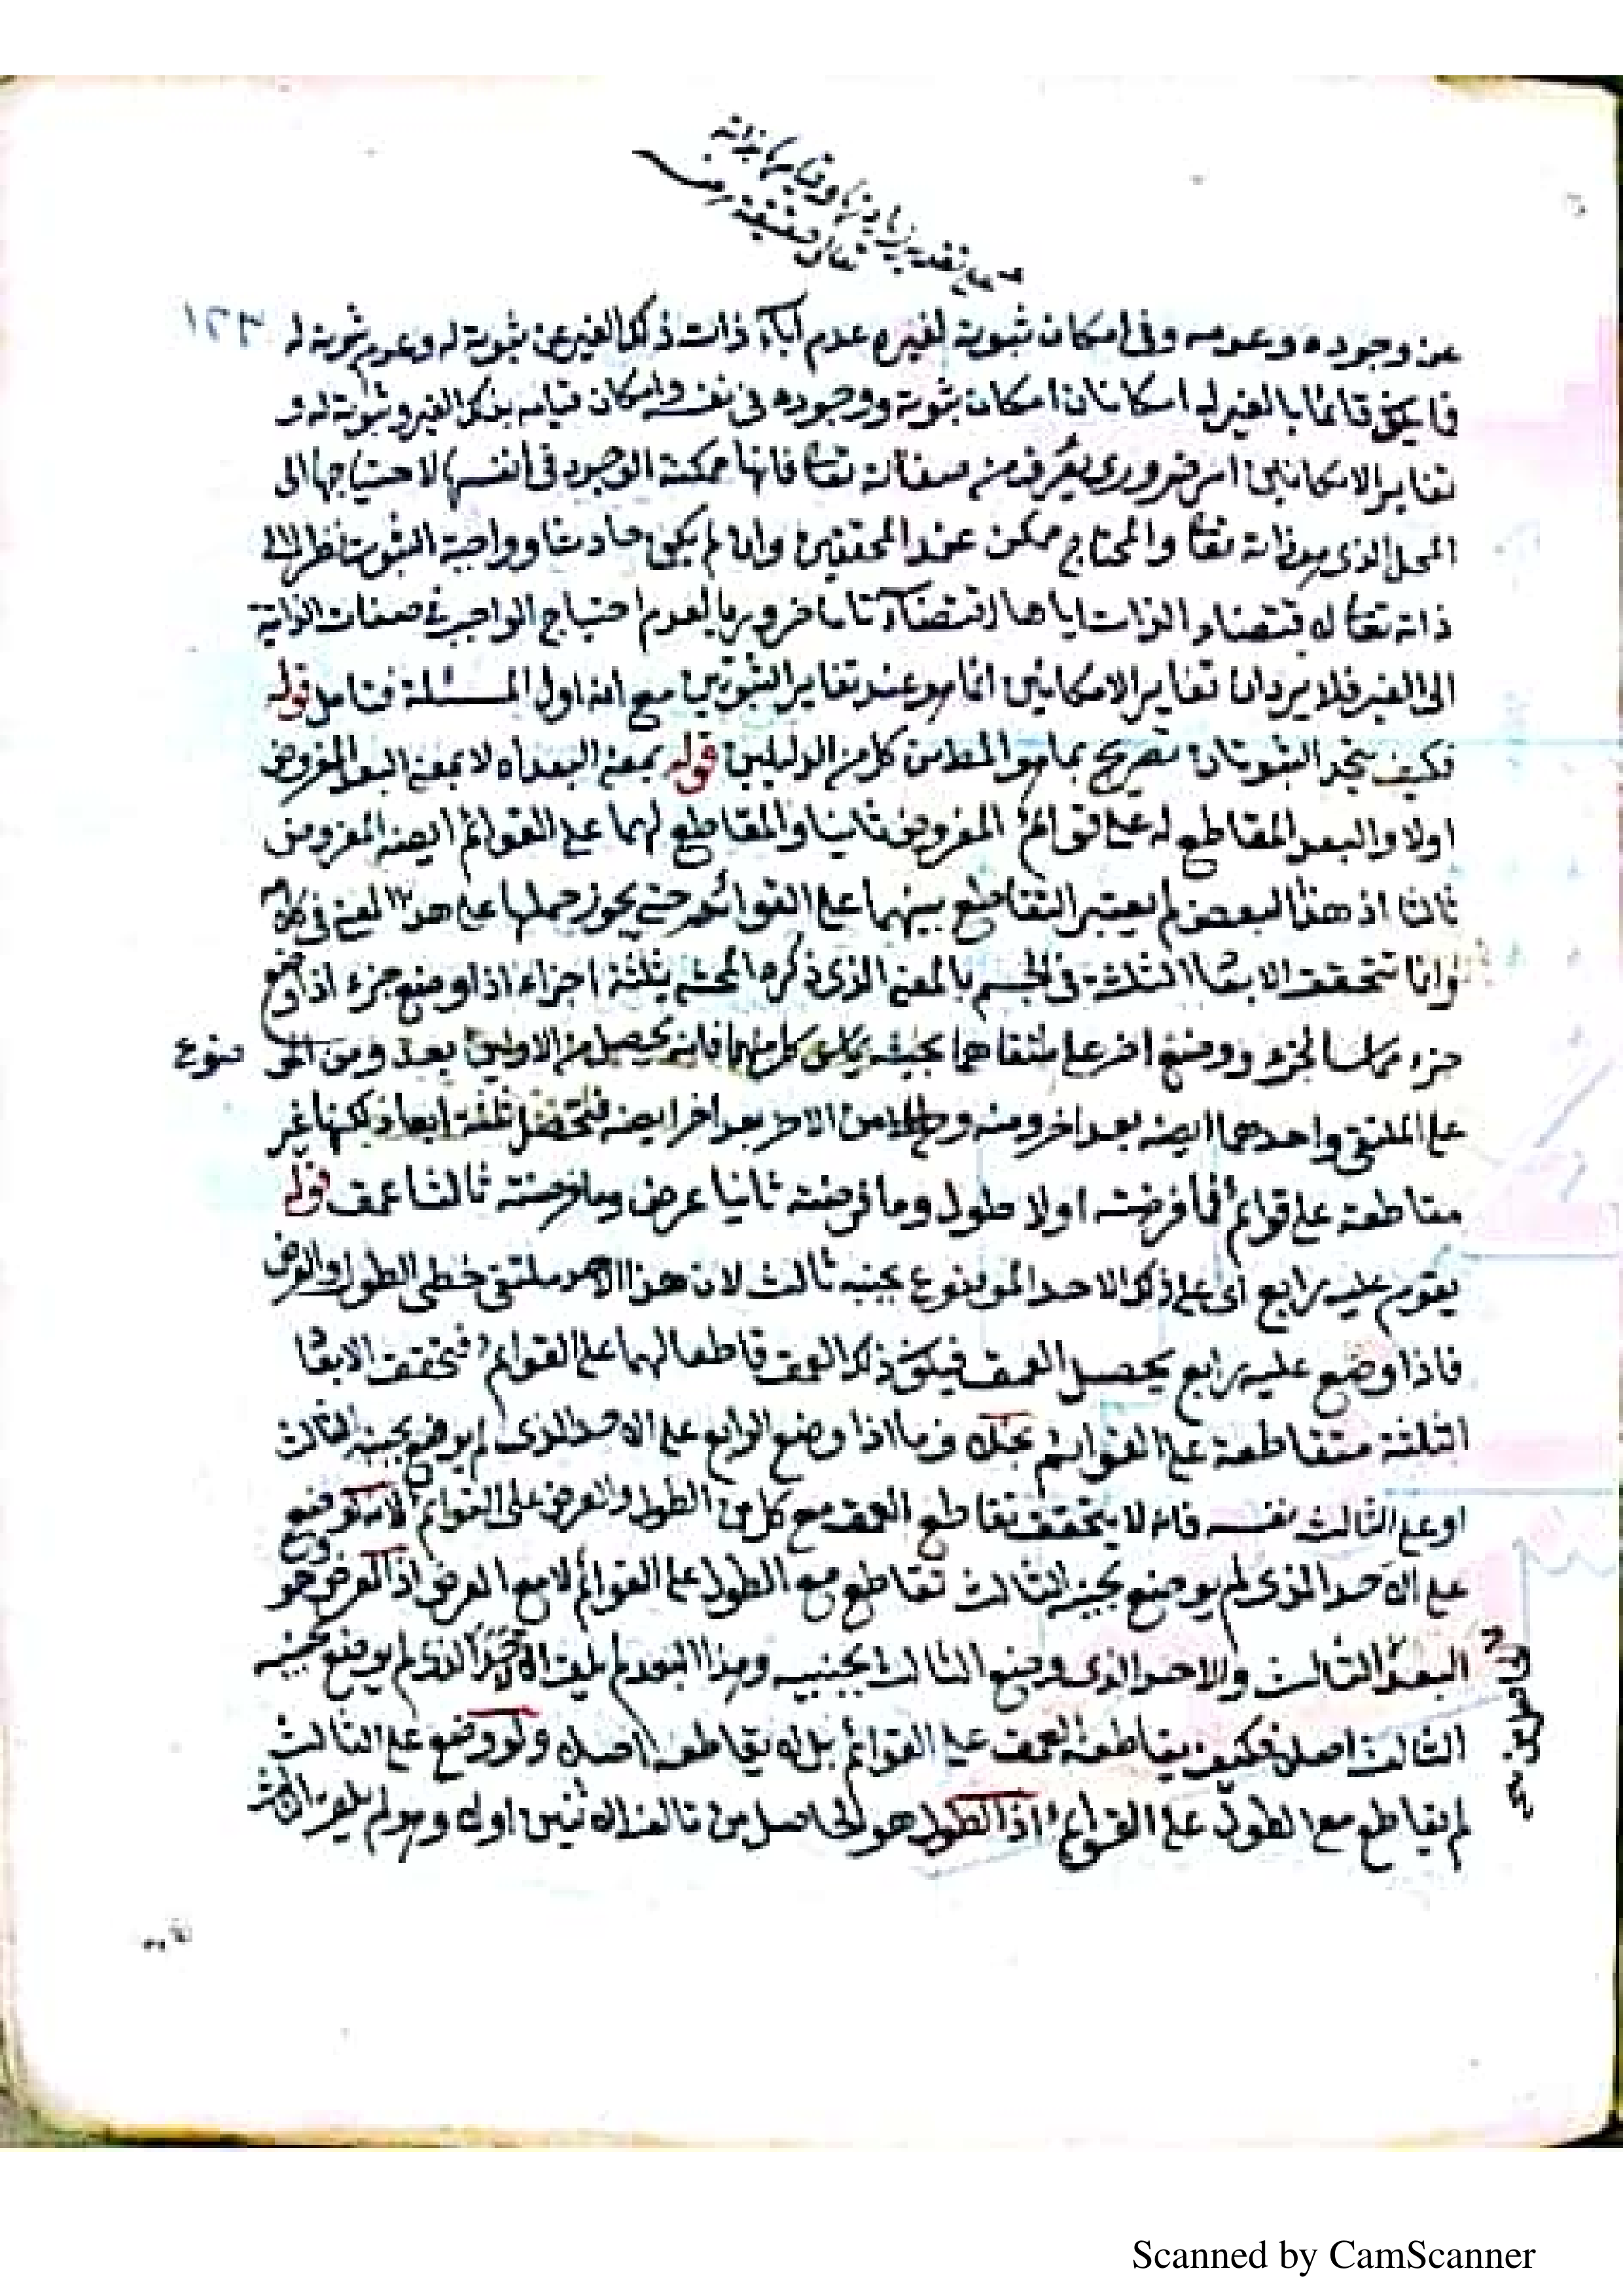 ١٢٣
عن وجوده وعدمه وفى امكان ثبوته لغيره عدم اباء ذات ذلك الغير عن ثبوته له وعدم ثبوته له
فما يكون قائما بالغير له امكانان امكان ثبوته ووجوده فى نفسه وامكان قيامه بذلك الغير وثبوته له و
تغاير الامكانين امر ضرورى يعرف من صفاته تعا فانها ممكنة الوجود فى انفسها لاحتياجها الى
المحل الذى هو ذاته تعا والمحتاج ممكن عند المحققين وان لم يكن حادثا وواجبة الثبوت نظرا الى
ذاته تعا لاقتضاء الذات اياها اقتضاء تاما ضروريا لعدم احتياج الواجب فى صفات الذاتية
الى الغير فلا يرد ان تغاير الامكانين انما هو عند تغاير الثبوتين مع انه اول المسئلة فتامل قوله
فكيف يتحد الثبوتان تصريح بما هو المط من كل من الدليلين قوله بمعنى البعد اه لا بمعنى البعد المفروض
اولا والبعد المقاطع له على قوائم المفروض ثانيا والمقاطع لهما على القوائم ايضه المفروض
ثالثا اذ هذا البعض لم يعتبر التقاطع بينهما على القوائم حتى يجوز حملها على هذا المعنى فى كلامه
وانما تتحقق الابعا الثلثة فى الجسم بالمعنى الذى ذكره المحشى بثلثة اجزاء اذا وضع جزء اذا وضع
جزء مماسا لجزء ووضع اخر على ملتقاهما بحيث يماس كل منهما فانه يحصل من الاولين بعد ومن المو ضوع
على الملتقى واحدهما ايضه بعد اخر ومنه ومن الاخر بعد اخر ايضه فتحصل ثلثة ابعاد لكنها غير
مقاطعة على قوائم فما فرضته اولا طول وما فرضته ثانيا عرض وما فرضته ثالثا عمق قوله
يقوم عليه رابع اى على ذلك الاحد الموضوع بجنبه ثالث لان هذا الاحد ملتقى خطى الطول والعرض
فاذا وضع عليه رابع يحصل العمق فيكون ذلك العمق قاطعا لهما على القوائم فتحقق الابعا
الثلثة متقاطعة على القوائم بخلاف ما اذا وضع الرابع على الاحد الذى لم يوضع بجنبه الثالث
او على الثالث نفسه فانه لا يتحقق تقاطع العمق مع كل من الطول والعرض على القوائم لانه لو وضع
على الاحد الذى لم يوضع بجنبه الثالث تقاطع مع الطول على القوائم لا مع العرض اذ العرض هو
البعد الثالث والاحد الذى وضع الثالث بجنبه وهذا البعد لم يلق الاحد الذى لم يوضع بجنبه
الثالث اصلا فكيف يقاطعه العمق على القوائم بل لا يقاطعه اصلا ولو وضع على الثالث
لم يقاطع مع الطول على القوائم اذ الطول هو الحاصل من تالف الاثنين اولا وهو لم يلق الثالث
Scanned by CamScanner